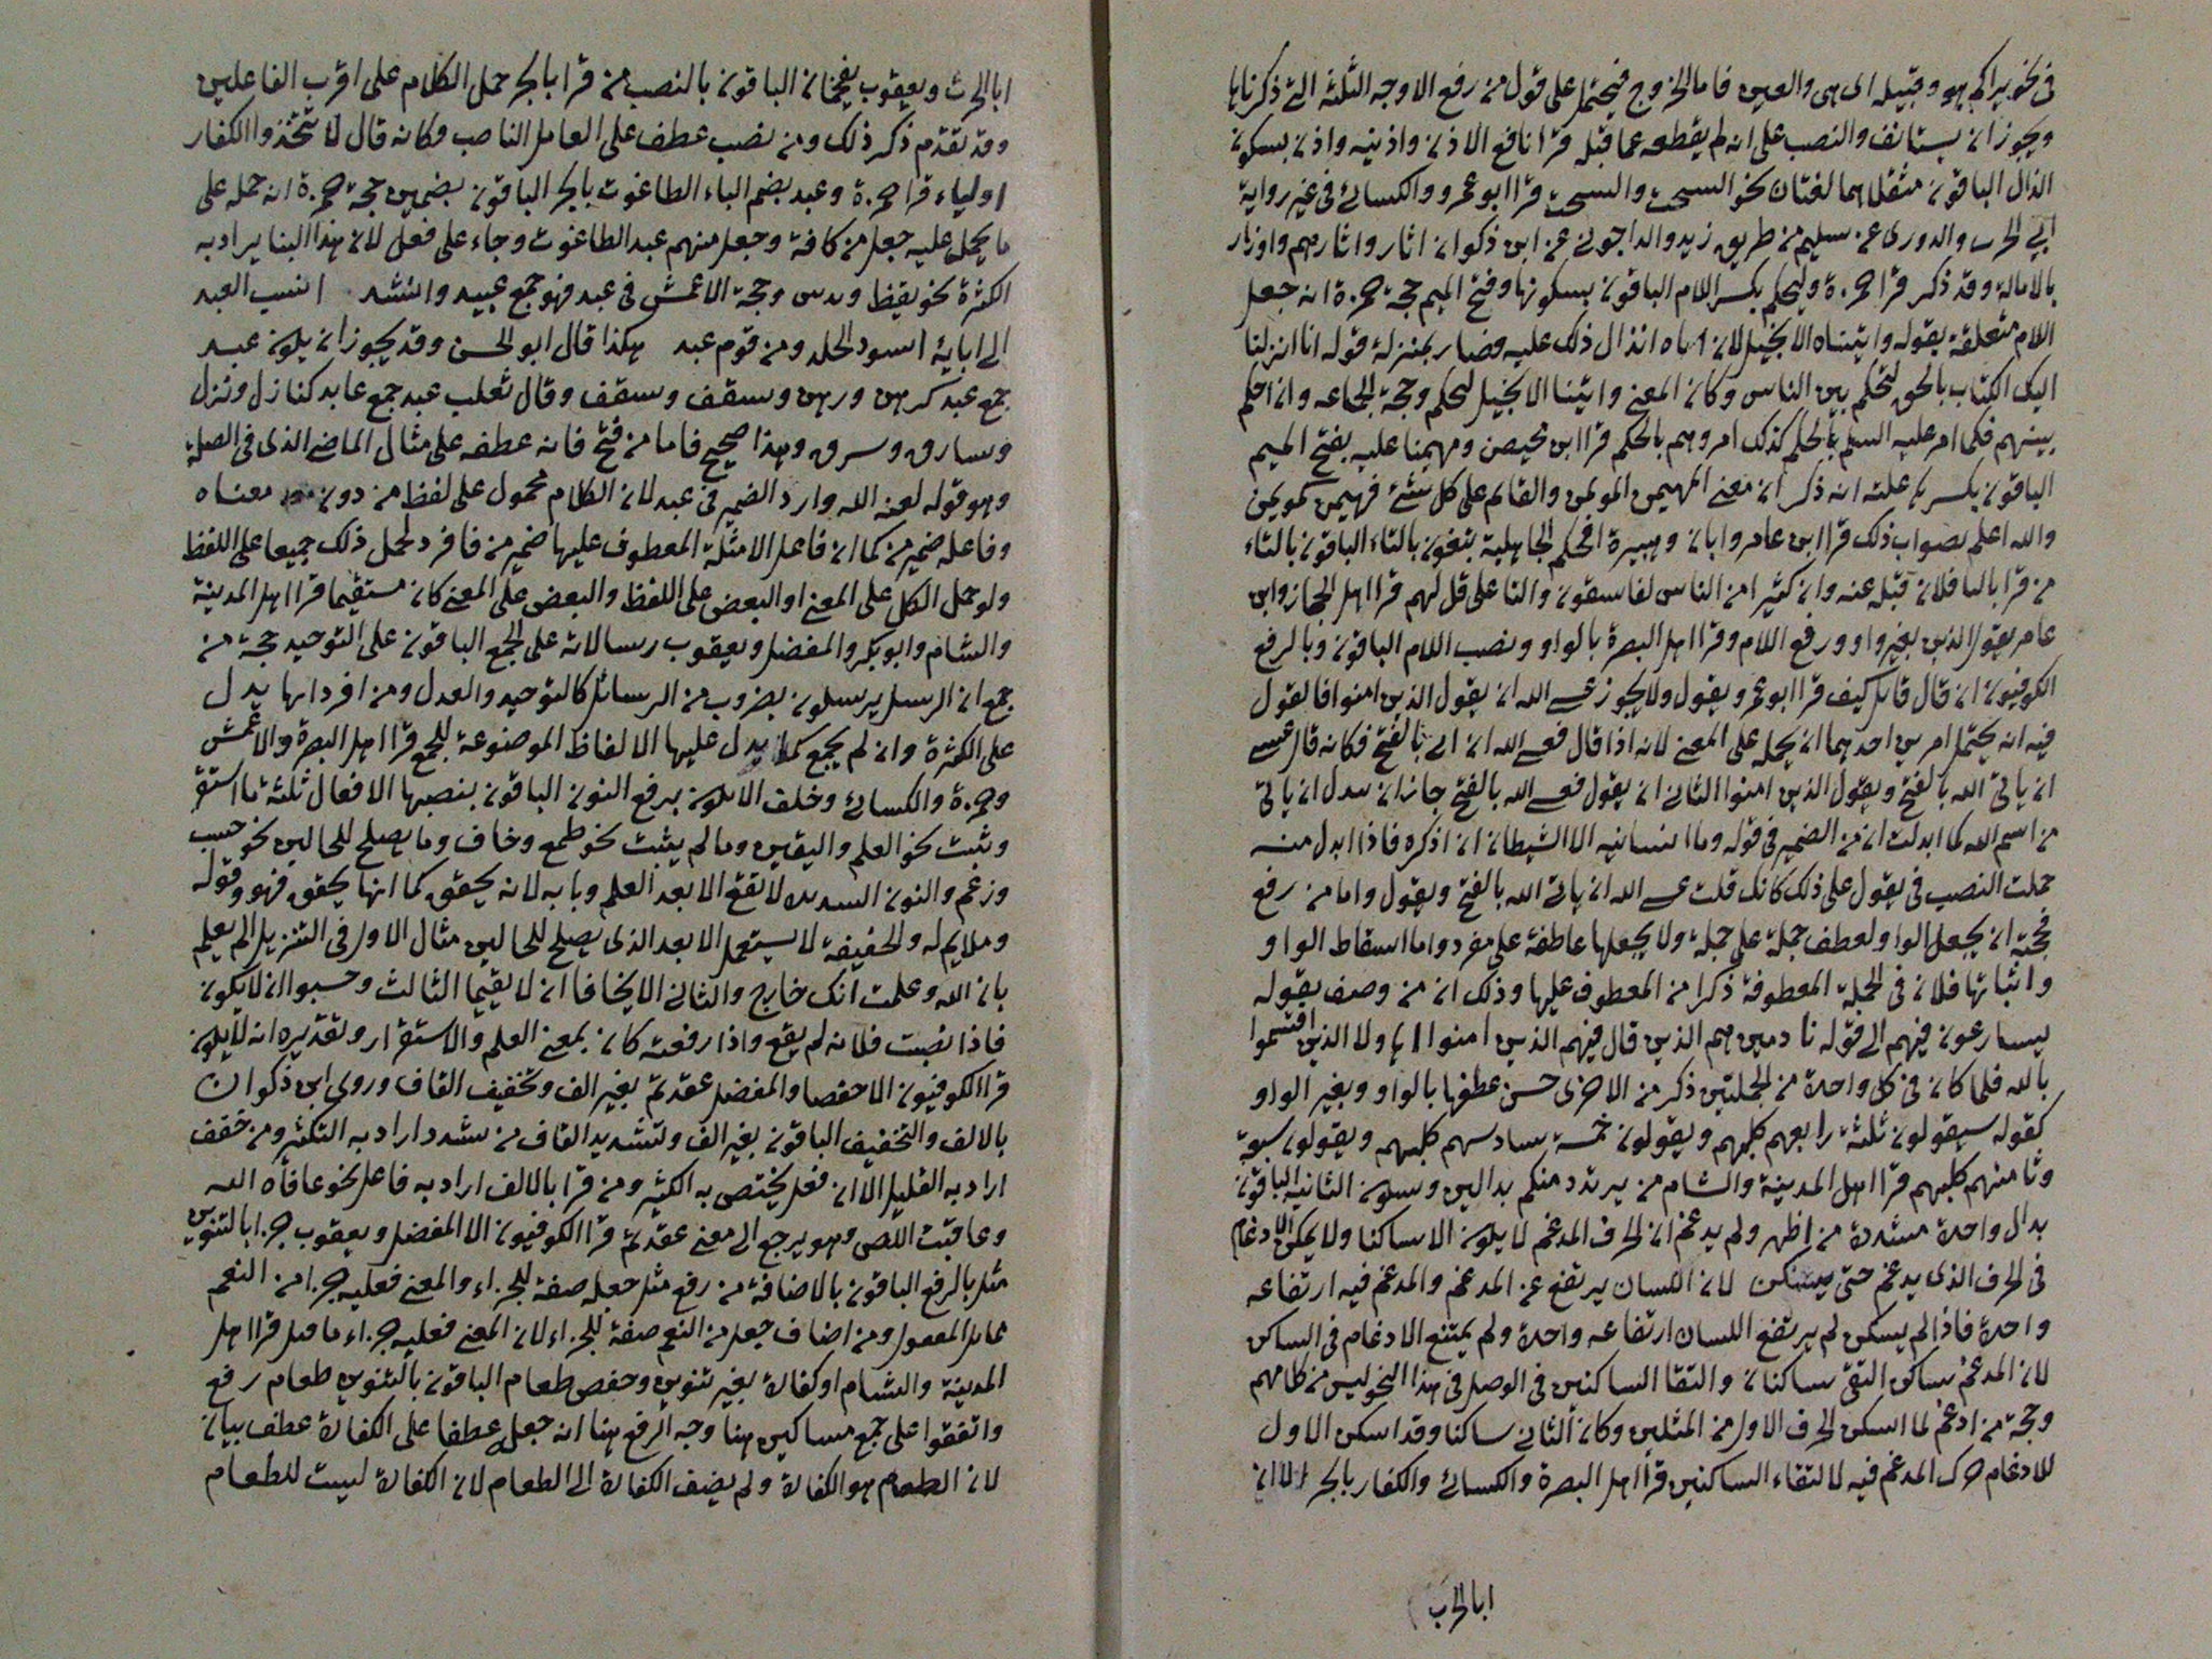 في نحو يراكم هو وقبيله اى هى والعين فاما الجروح فيحتمل على قول من رفع الاوجه الثلثة التى ذكرناها
ويجوز ان يستانف والنصب على انه لم يقطعه عما قبله قرا نافع الاذن واذنيه واذن بسكون
الذال الباقون مثقلا هما لغتان نحو السحت والسحت قرا ابو عمرو والكسائى فى غير رواية
ابى الحرث والدورى عن سليم من طريق زيد والداجونى عن ابن ذكوان اثار واثارهم واوزار
بالامالة وقد ذكر قرا حمزة وليحكم بكسر اللام الباقون بسكونها وفتح الميم حجة حمزة انه جعل
اللام متعلقة بقوله واتيناه الانجيل لان انزال ذلك عليه فصار بمنزلة قوله انا انزلنا
اليك الكتاب بالحق لتحكم بين الناس وكان المعنى واتينا الانجيل ليحكم وحجة الجماعه وان احكم
بينهم فكما امر عليه السلم بالحكم كذلك امروهم بالحكم قرا ابن محيصن ومهيمنا عليه بفتح الميم
الباقون بكسرها علته انه ذكر ان معنى المهيمن الموتمن والقائم على كل شئ فهيمن
والله اعلم بصواب ذلك قرا ابن عامر وابان وهبيرة افحكم الجاهلية تبغون بالتاء الباقون بالتاء
من قرا باليا فلان قبله عنه وان كثيرا من الناس لفاسقون والتا على قل لهم قرا اهل الحجاز وابن
عامر يقول الذين بغير واو ورفع اللام وقرا اهل البصرة بالواو ونصب اللام الباقون وبالرفع
الكوفيون ان قال قائل كيف قرا ابو عمرو ويقول ولا يجوز عسى الله ان يقول الذين امنوا فالقول
فيه انه يحتمل امرين احدهما ان يحمله على المعنى لانه اذا قال فعسى الله ان ياتى بالفتح فكانه قال عسى
ان ياتى الله بالفتح ويقول الذين امنوا الثانى ان يقول فعسى الله بالفتح جائز ان يبدل ان ياتى
من اسم الله كما ابدلت ان من الضمير فى قوله وما انسانيه الا الشيطان ان اذكره فاذا ابدل منه
حملت النصب فى يقول على ذلك كانك قلت عسى الله ان ياتى الله بالفتح ويقول واما من رفع
فحجته ان يجعل الواو لعطف جملة على جملة ولا يجعلها عاطفة على مفرد واما اسقاط الواو
واثباتها فلان فى الجملة المعطوفة ذكرا من المعطوف عليها وذلك ان من وصف بقوله
يسارعون فيهم الى قوله نادمين هم الذين قال فيهم الذين امنوا اهولا الذين اقسموا
بالله فلما كان فى كل واحدة من الجملتين ذكر من الاخرى حسن عطفها بالواو وبغير الواو
كقوله سيقولون ثلثة رابعهم كلبهم ويقولون خمسة سادسهم كلبهم ويقولون سبعة
وثامنهم كلبهم قرا اهل المدينة والشام من يرتدد منكم بدالين وسكون الثانية الباقون
بدال واحدة مشددة من اظهر ولم يدغم ان الحرف المدغم لا يكون الا ساكنا ولا يمكن الادغام
فى الحرف الذى يدغم حتى يسكن لان اللسان يرتفع عن المدغم والمدغم فيه ارتفاعه
واحدة فاذا لم يسكن لم يرتفع اللسان ارتفاعه واحدة ولم يمتنع الادغام فى الساكن
لان المدغم ساكن التقى ساكنان والتقا الساكنين فى الوصل فى هذا النحو ليس من كلامهم
وحجة من ادغم لما اسكن الحرف الاول من المثلين وكان الثانى ساكنا وقد اسكن الاول
للادغام حرك المدغم فيه لالتقاء الساكنين قرا اهل البصرة والكسائى والكفار بالجر الا ان
ابا الحرث
ابا الحرث ويعقوب يفخمان الباقون بالنصب من قرا بالجر حمل الكلام على اقرب الفاعلين
وقد تقدم ذكر ذلك ومن نصب عطف على العامل الناصب وكانه قال لا تتخذوا الكفار
اولياء قرا حمزة وعبد بضم الباء الطاغوت بالجر الباقون بضمين حجة حمزة انه حمله على
ما يحمل عليه جعل من كافة وجعل منهم عبد الطاغوت وجاء على فعل لان هذا البنا يراد به
الكثرة نحو يقظ وندس وحجة الاعمش فى عبد فهو جمع عبيد وانشد انسب العبد
الى ابائه اسود الجلد ومن قوم عبد هكذا قال ابو الحسن وقد يجوز ان يكون عبد
جمع عبد كرهن ورهن وسقف وسقف وقال ثعلب عبد جمع عابد كنازل ونزل
وسارق وسرق وهذا صحيح فاما من فتح فانه عطفه على مثال الماضى الذى فى الصلة
وهو قوله لعنه الله وارد الضمير فى عبد لان الكلام محمول على لفظ من دون معناه
وفاعله ضمير من كما ان فاعل الامثلة المعطوف عليها ضمير من فافرد لحمل ذلك جميعا على اللفظ
ولو حمل الكل على المعنى او البعض على اللفظ والبعض على المعنى كان مستقيما قرا اهل المدينة
والشام وابو بكر والمفضل ويعقوب رسالاته على الجمع الباقون على التوحيد حجة من
جمع ان الرسل يرسلون بضروب من الرسائل كالتوحيد والعدل ومن افردها يدل
على الكثرة وان لم يجمع كما يدل عليها الالفاظ الموضوعة للجمع قرا اهل البصرة والاعمش
وحمزة والكسائى وخلف الا يكون برفع النون الباقون بنصبها الافعال ثلثة ما استقر
وثبت نحو العلم واليقين وما لم يثبت نحو طمع وخاف وما يصلح للحالين نحو حسب
وزعم والنون الشديدة لا تقع الا بعد العلم وبابه لانه يحقق كما انها يحقق فهو وقوله
وملايم له والخفيفة لا يستعمل الا بعد الذى يصلح للحالين مثال الاول فى التنزيل الم يعلم
بان الله وعلمت انك خارج والثانى الا يخافا ان لا يقيما الثالث وحسبوا ان لا يكون
فاذا نصبت فلانه لم يقع واذا رفعته كان بمعنى العلم والاستقرار وتقديره انه لا يكون
قرا الكوفيون الا حفصا والمفضل عقدتم بغير الف وتخفيف القاف وروى ابن ذكوان
بالالف والتخفيف الباقون بغير الف وتشديد القاف من شدد اراد به التكثير ومن خفف
اراد به القليل الا ان فعل يختص به الكثير ومن قرا بالالف اراد به فاعل نحو عافاه الله
وعاقبت اللص وهو يرجع الى معنى عقدتم قرا الكوفيون الا المفضل ويعقوب جزا بالتنوين
مثل بالرفع الباقون بالاضافة من رفع مثل جعله صفة للجزاء والمعنى فعليه جزا من النعم
مماثل المقتول ومن اضاف جعل من النعم صفة للجزاء لان المعنى فعليه جزاء ما قتل قرا اهل
المدينة والشام او كفارة بغير تنوين وخفض طعام الباقون بالتنوين طعام رفع
واتفقوا على جمع مساكين هنا وجه الرفع هنا انه جعله عطفا على الكفارة عطف بيان
لان الطعام هو الكفارة ولم يضف الكفارة الى الطعام لان الكفارة ليست للطعام